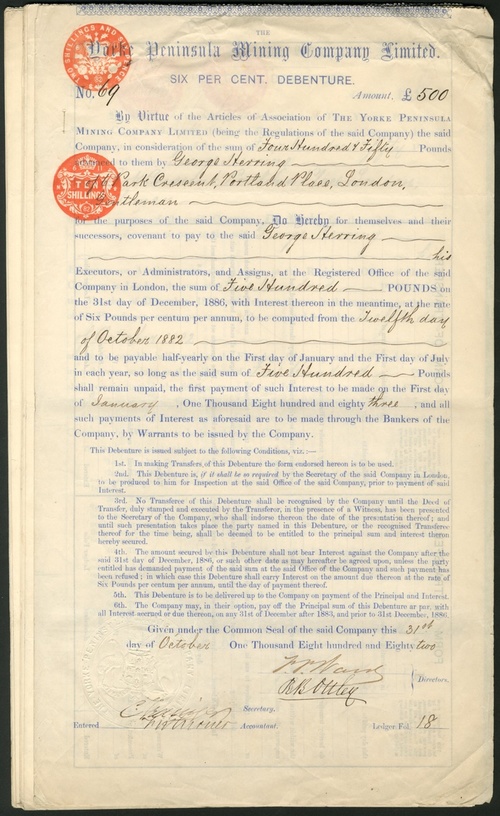 THE
Yorke Peninsula Mining Company Limited.
SIX PER CENT. DEBENTURE.
No. 69 Amount, £500
By Virtue of the Articles of Association of THE YORKE PENINSULA
MINING COMPANY LIMITED (being the Regulations of the said Company) the said
Company, in consideration of the sum of Four Hundred & Fifty Pounds
advanced to them by George Herring
Park Crescent, Portland Place, London,
Gentleman
for the purposes of the said Company, Do Hereby for themselves and their
successors, covenant to pay to the said George Herring
his
Executors, or Administrators, and Assigns, at the Registered Office of the said
Company in London, the sum of Five Hundred POUNDS on
the 31st day of December, 1886, with Interest thereon in the meantime, at the rate
of Six Pounds per centum per annum, to be computed from the Twelfth day
of October 1882
and to be payable half-yearly on the First day of January and the First day of July
in each year, so long as the said sum of Five Hundred Pounds
shall remain unpaid, the first payment of such Interest to be made on the First day
of January, One Thousand Eight hundred and eighty three, and all
such payments of Interest as aforesaid are to be made through the Bankers of the
Company, by Warrants to be issued by the Company.
This Debenture is issued subject to the following Conditions, viz.:—
1st. In making Transfers of this Debenture the form endorsed hereon is to be used.
2nd. This Debenture is, if it shall be so required by the Secretary of the said Company in London,
to be produced to him for Inspection at the said Office of the said Company, prior to payment of said
Interest.
3rd. No Transferee of this Debenture shall be recognised by the Company until the Deed of
Transfer, duly stamped and executed by the Transferor, in the presence of a Witness, has been presented
to the Secretary of the Company, who shall indorse thereon the date of the presentation thereof; and
until such presentation takes place the party named in this Debenture, or the recognised Transferee
thereof for the time being, shall be deemed to be entitled to the principal sum and interest thereon
hereby secured.
4th. The amount secured by this Debenture shall not bear Interest against the Company after the
said 31st day of December, 1886, or such other date as may hereafter be agreed upon, unless the party
entitled has demanded payment of the said sum at the said Office of the said Company and such payment has
been refused; in which case this Debenture shall carry Interest on the amount due thereon at the rate of
Six Pounds per centum per annum, until the day of payment thereof.
5th. This Debenture is to be delivered up to the Company on payment of the Principal and Interest.
6th. The Company may, in their option, pay off the Principal Sum of this Debenture at par, with
all Interest accrued or due thereon, on any 31st of December after 1883, and prior to 31st December, 1886.
Given under the Common Seal of the said Company this 31st
day of October One Thousand Eight hundred and Eighty two
Directors.
R B Ottley
Secretary.
Entered Accountant. Ledger Fol. 18